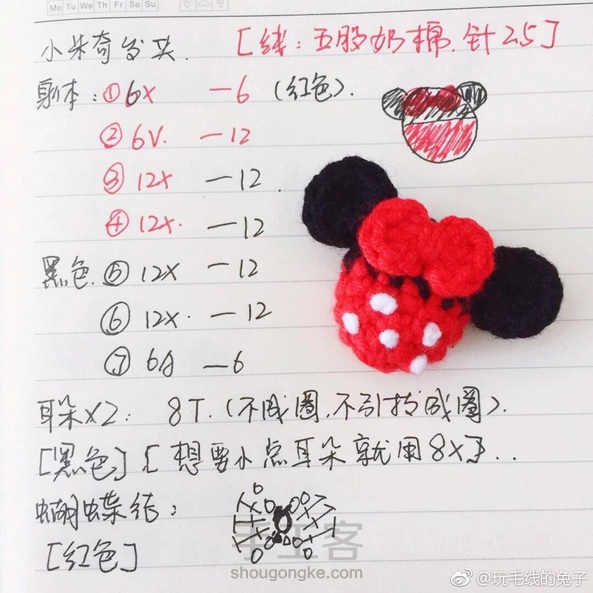 Mo Tu We Th Fr Sa Su
小米奇发夹. [线:五股奶棉.针2.5]
身体:①6X —6 (红色).
②6V. —12
③12X —12.
④12X. —12
黑色.⑤12X —12
⑥12X. —12
⑦6A —6
耳朵X2: 8T.(不成圈,不引拔成圈).
[黑色] [想要小点耳朵就用8X]...
蝴蝶结:
[红色]
手工客
shougongke.com
@玩毛线的兔子